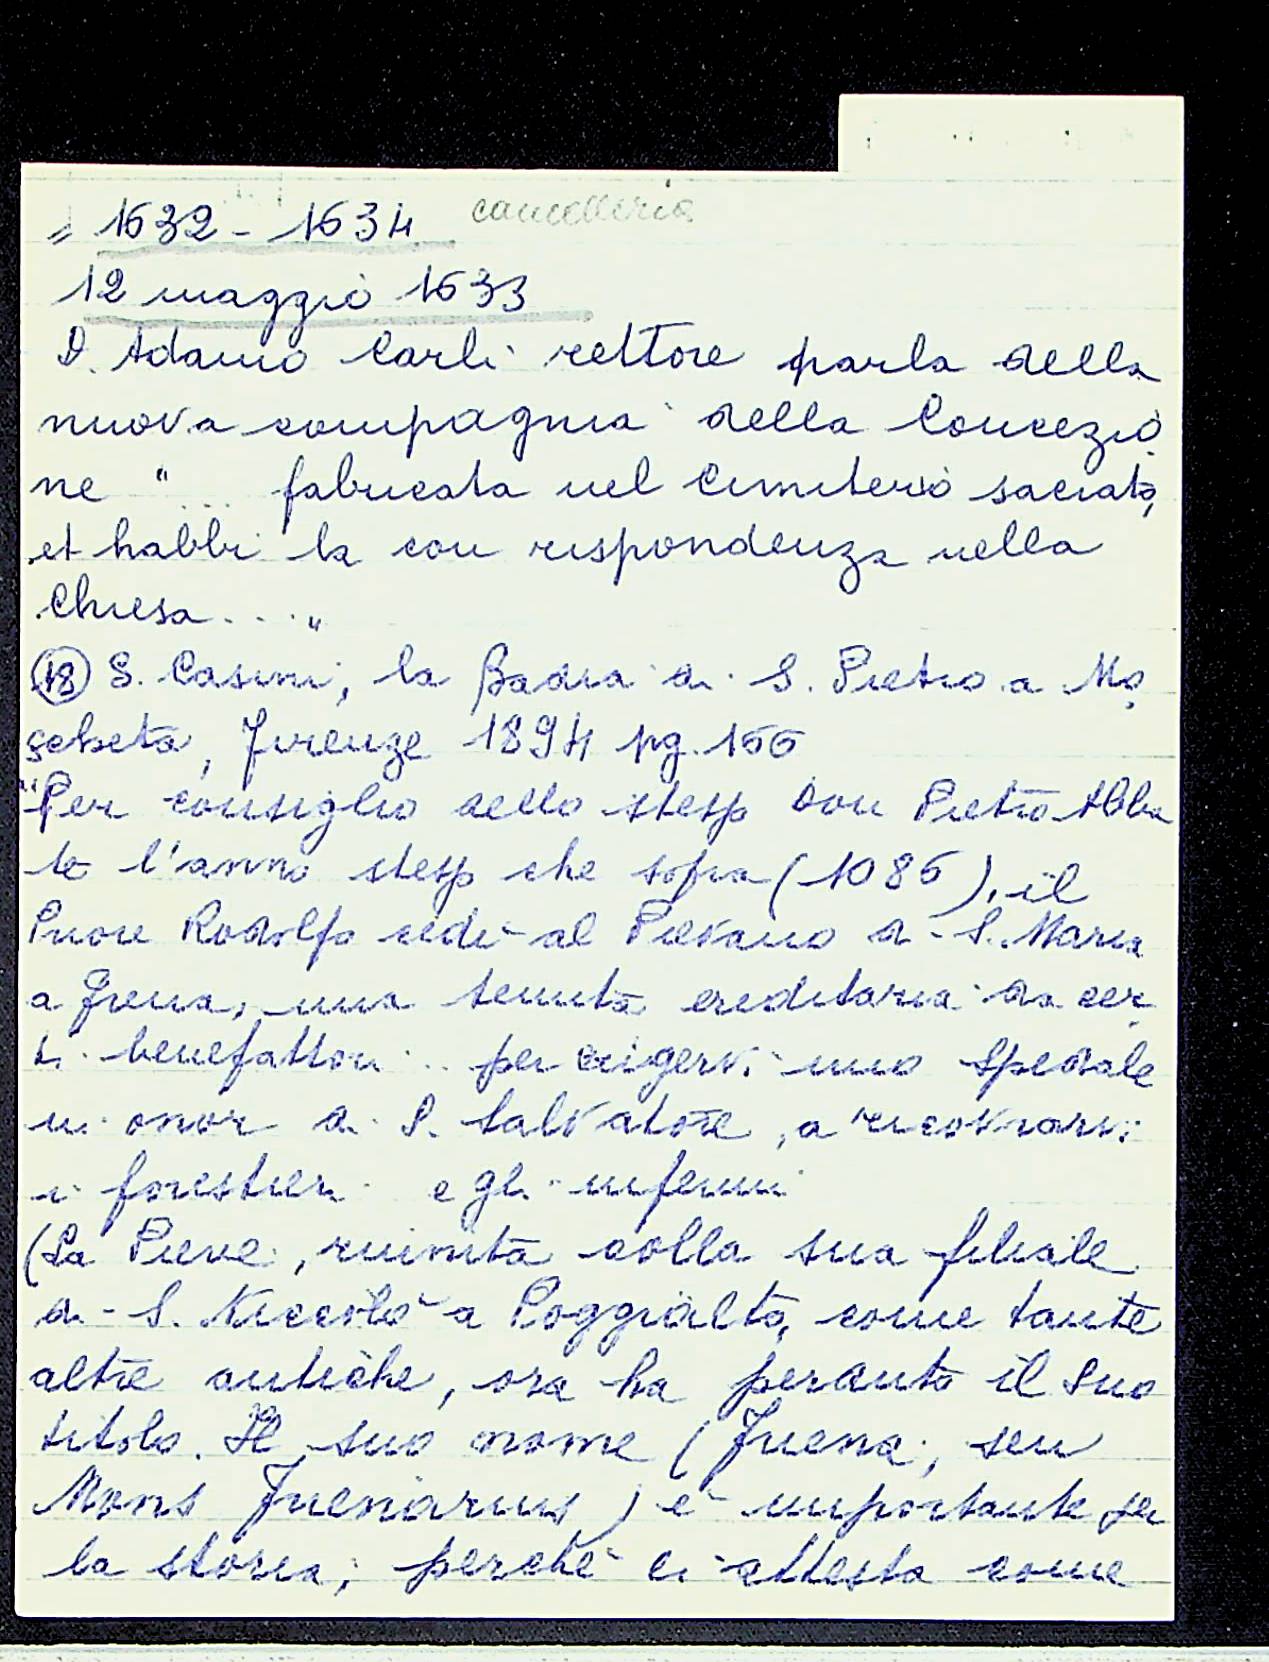 = 1632 - 1634 cancelleria
12 maggio 1633
D. Adamo Carli rettore parla della
nuova compagnia della Concezio
ne " ... fabricata nel Cimiterio sacrato,
et habbi la con rispondenza nella
Chiesa... "
(18) S. Casini, la Badia di S. Pietro a Mo
scheta, Firenze 1894 pg. 166
"Per consiglio dello stesso Don Pietro Abba
te l'anno stesso che sopra (1086), il
Priore Rodolfo cedè al Pievano di S. Maria
a Frena, una tenuta ereditaria da cer
ti benefattori .. per erigervi uno spedale
in onor di S. Salvatore, a ricovrarvi
i forestieri e gli infermi
(La Pieve, riunita colla sua filiale
di S. Niccolò a Poggialto, come tante
altre antiche, ora ha perduto il suo
titolo. Il suo nome (Frena, seu
Mons Frenarius) è importante per
la storia; perchè ci attesta come